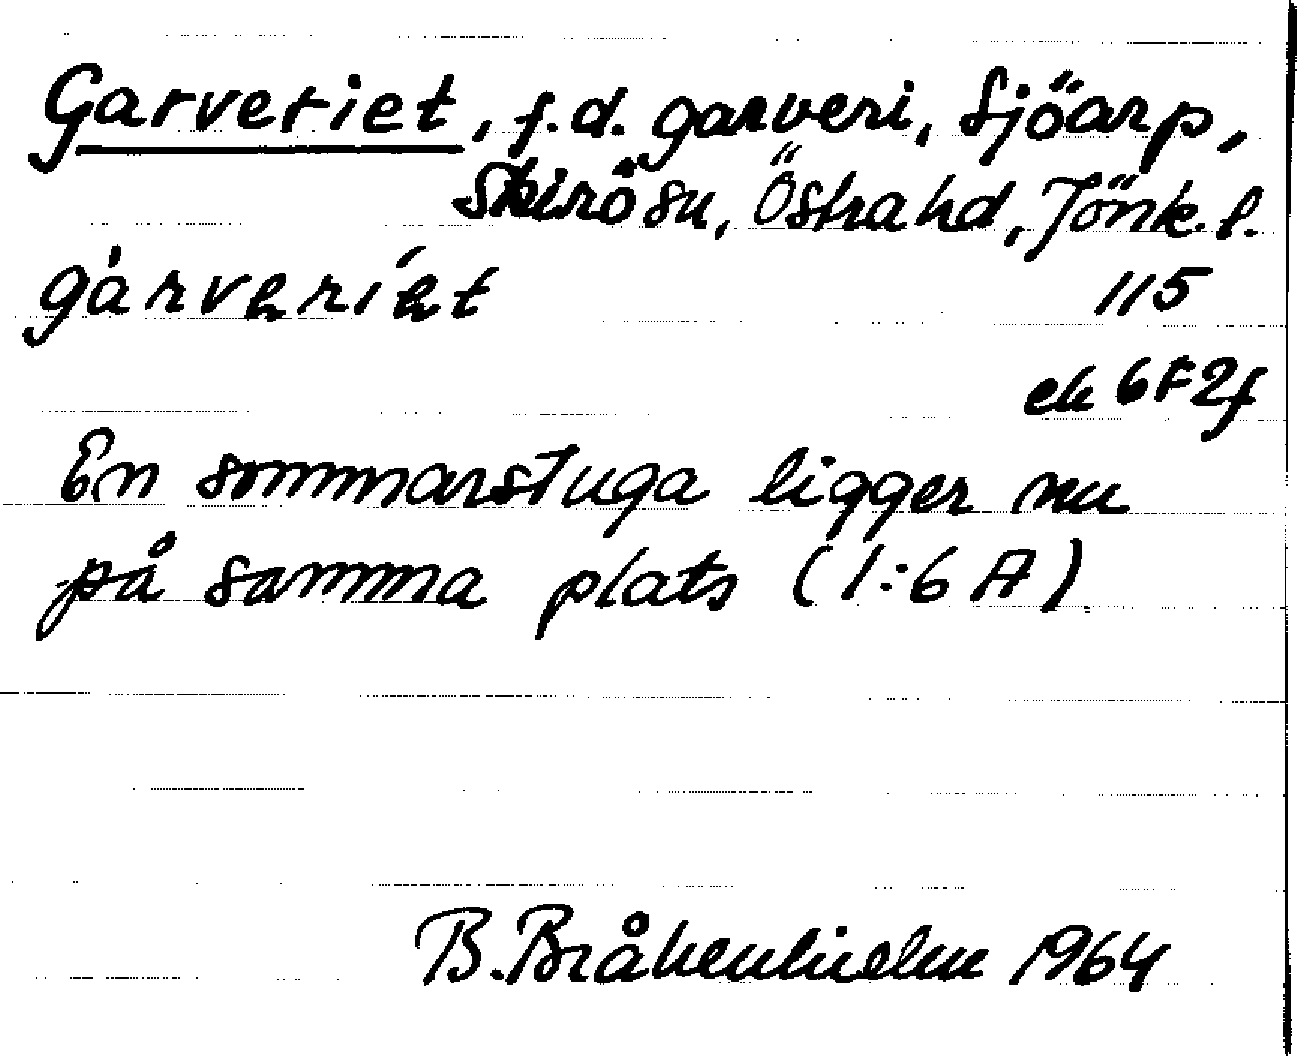 Garveriet, f.d. garveri, Sjöarp,
Skirö sn, Östra hd, Jönk. l.
gàrveríet 115
ek 6F2f
En sommarstuga ligger nu
på samma plats (1:6 A)
B. Bråkenhielm 1964